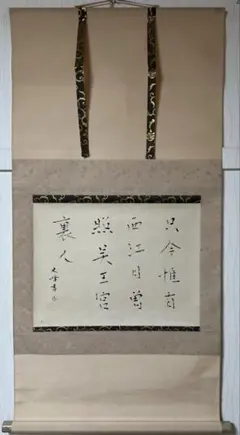 只今惟有
西江月曽
照呉王宮
裏人